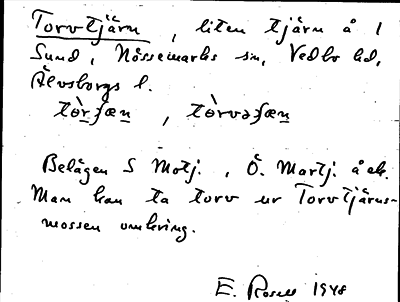 Torvtjärn, liten tjärn å 1
Sund, Nössemarks sn, Vedbo hd,
Älvsborgs l.
tòrʃæn, tòrvəʃæn
Belägen S Motj., Ö. Martj. å ek.
Man kan ta torv ur Torvtjärns-
mossen omkring.
E. Rosell 1948